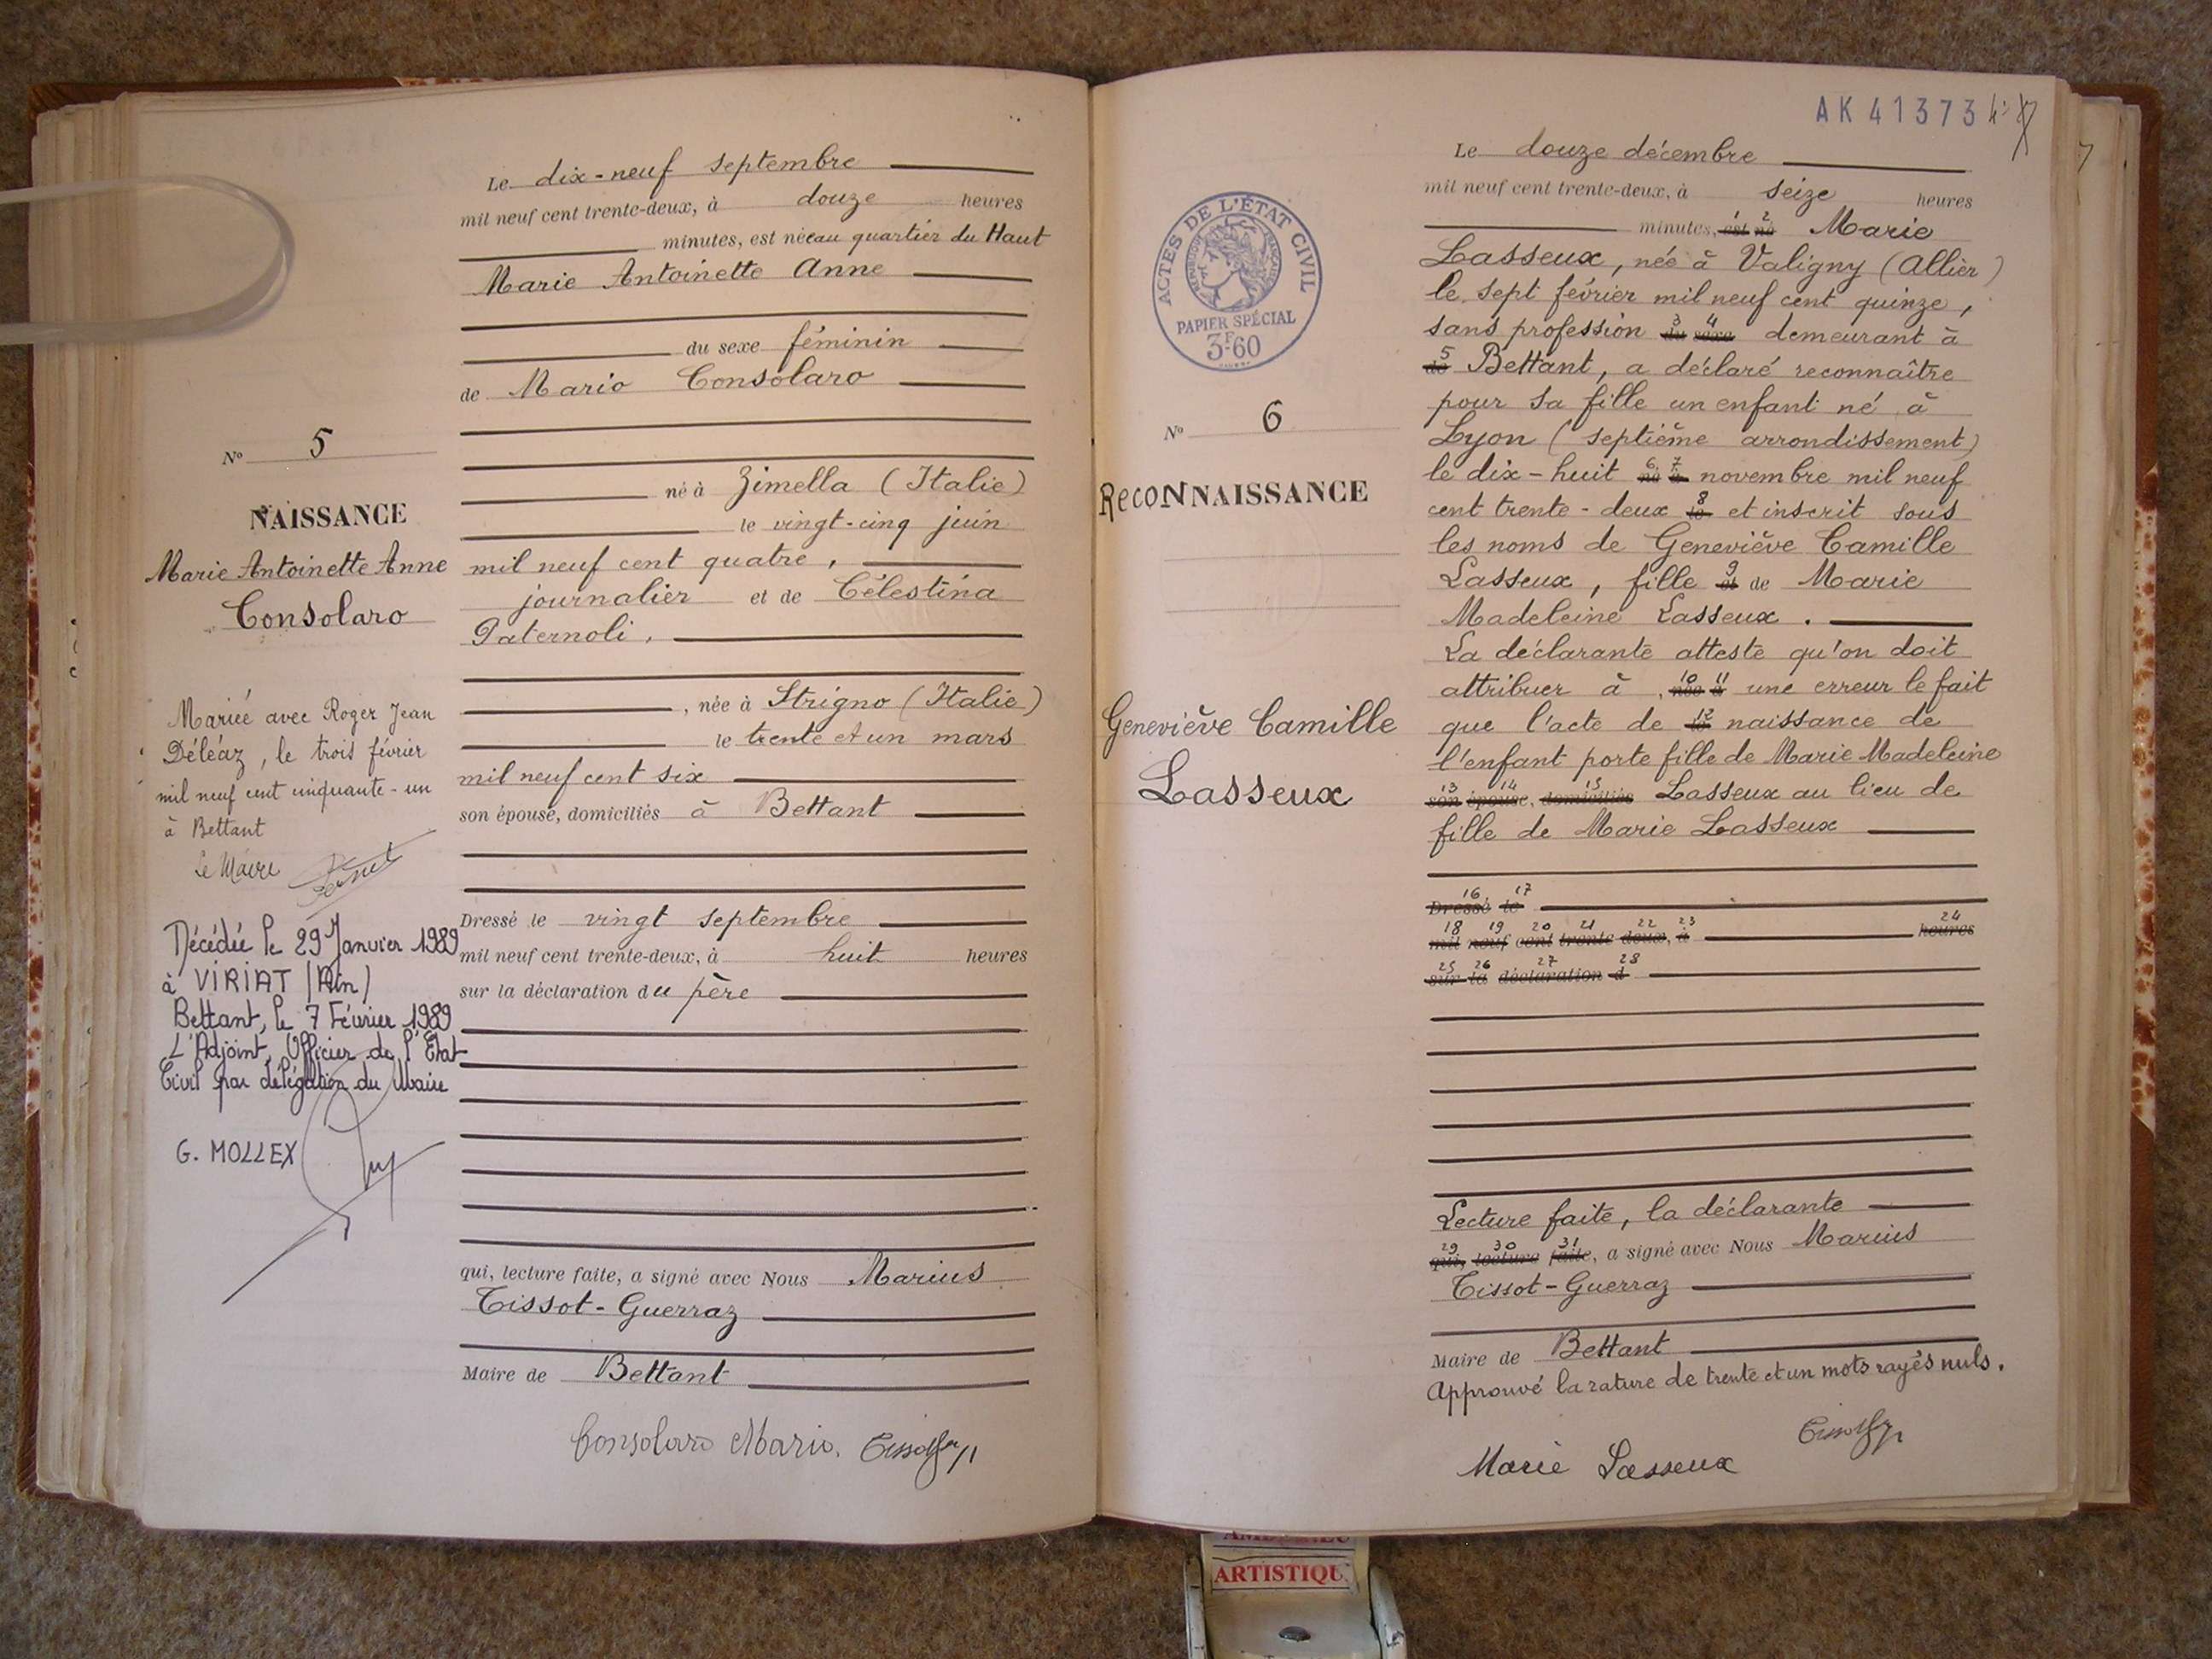 Le dix-neuf septembre
mil neuf cent trente-deux, à douze heures
minutes, est née au quartier du Haut
Marie Antoinette Anne
du sexe féminin
de Mario Consolaro
né à Zimella (Italie)
le vingt-cinq juin
mil neuf cent quatre,
journalier et de Célestina
Paternoli,
, née à Strigno (Italie)
le trente et un mars
mil neuf cent six
son épouse, domiciliés à Bettant
Dressé le vingt septembre
mil neuf cent trente-deux, à huit heures
sur la déclaration du père
qui, lecture faite, a signé avec Nous Marius
Tissot-Guerraz
Maire de Bettant
Consolaro Mario.
N° 5
NAISSANCE
Marie Antoinette Anne
Consolaro
Mariée avec Roger Jean
Déléaz, le trois février
mil neuf cent cinquante-un
à Bettant
Le Maire
Décédée le 29 Janvier 1989
à VIRIAT (Ain)
Bettant, le 7 Février 1989
L'Adjoint, Officier de l'Etat
Civil par délégation du Maire
G. MOLLEX
AK 41373
ACTES DE L'ÉTAT CIVIL
RÉPUBLIQUE FRANÇAISE
PAPIER SPÉCIAL
3F.60
N° 6
RECONNAISSANCE
Geneviève Camille
Lasseux
Le douze décembre
mil neuf cent trente-deux, à seize heures
1 2
minutes, est né Marie
Lasseux, née à Valigny (Allier)
le sept février mil neuf cent quinze,
3 4
sans profession du sexe demeurant à
5
de Bettant, a déclaré reconnaître
pour sa fille un enfant né à
Lyon (septième arrondissement)
6 7
le dix-huit né à novembre mil neuf
8
cent trente-deux le et inscrit sous
les noms de Geneviève Camille
9
Lasseux, fille et de Marie
Madeleine Lasseux.
La déclarante atteste qu'on doit
10 11
attribuer à , née à une erreur le fait
12
que l'acte de le naissance de
l'enfant porte fille de Marie Madeleine
13 14 15
son épouse, domiciliés Lasseux au lieu de
fille de Marie Lasseux
16 17
Dressé le
18 19 20 21 22 23 24
mil neuf cent trente-deux, à heures
25 26 27 28
sur la déclaration d
Lecture faite, la déclarante
29 30 31
qui, lecture faite, a signé avec Nous Marius
Tissot-Guerraz
Maire de Bettant
Approuvé la rature de trente et un mots rayés nuls.
Marie Lasseux
ARTISTIQU